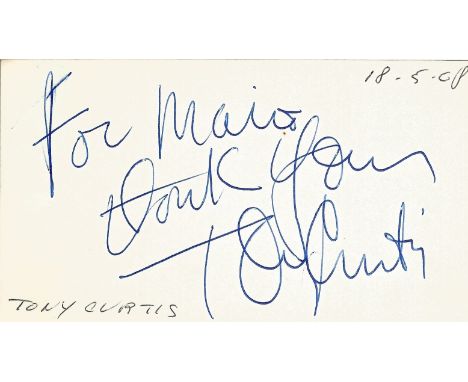 18-5-08
For Mario
Thank You
Tony Curtis
TONY CURTIS